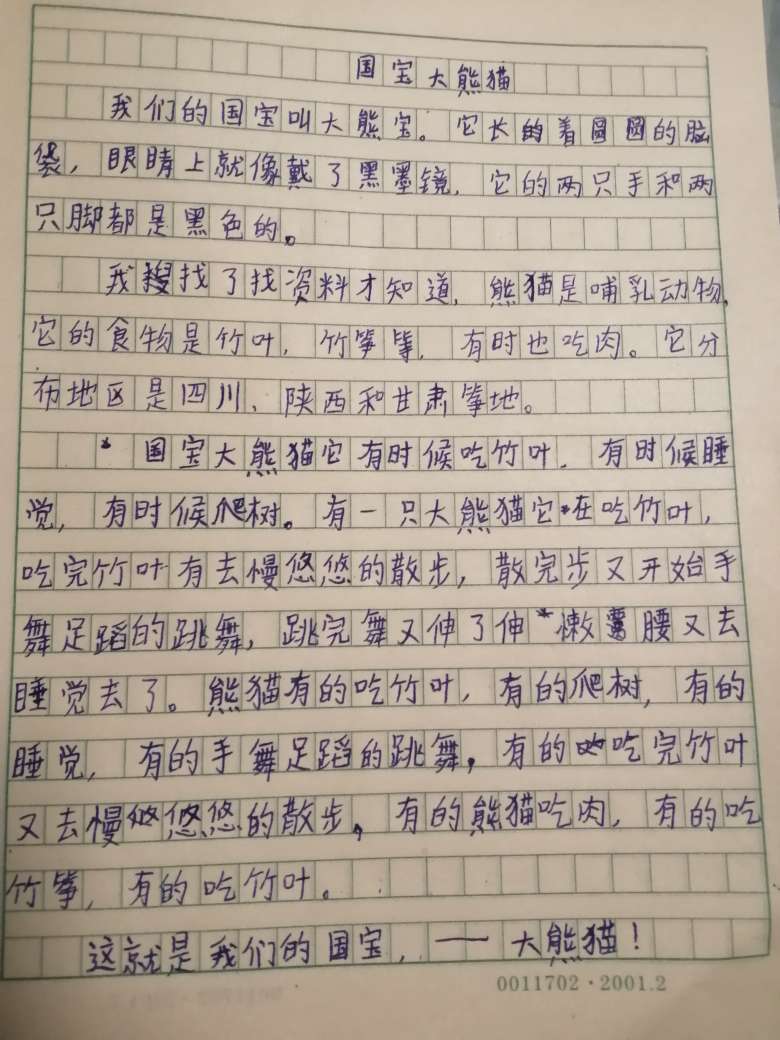 国宝大熊猫
我们的国宝叫大熊宝。它长着圆圆的脑
袋，眼睛上就像戴了黑墨镜，它的两只手和两
只脚都是黑色的。
我找了找资料才知道，熊猫是哺乳动物，
它的食物是竹叶，竹笋等，有时也吃肉。它分
布地区是四川、陕西和甘肃等地。
国宝大熊猫它有时候吃竹叶，有时候睡
觉，有时候爬树。有一只大熊猫它在吃竹叶，
吃完竹叶有去慢悠悠的散步，散完步又开始手
舞足蹈的跳舞，跳完舞又伸了伸懒腰又去
睡觉去了。熊猫有的吃竹叶，有的爬树，有的
睡觉，有的手舞足蹈的跳舞，有的吃完竹叶
又去慢悠悠的散步，有的熊猫吃肉，有的吃
竹笋，有的吃竹叶。
这就是我们的国宝，——大熊猫！
0011702·2001.2